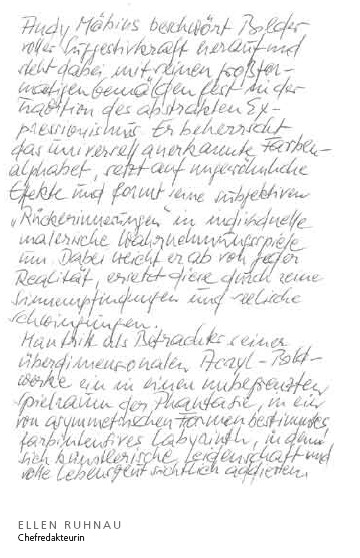 Andy Möbius beschwört Bilder
voller Suggestivkraft herauf und
steht dabei mit seinen großfor-
matigen Gemälden fest in der
Tradition des abstrakten Ex-
pressionismus. Er beherrscht
das universell anerkannte Farben-
alphabet, setzt auf ungewöhnliche
Effekte und formt seine subjektiven
„Rückerinnerungen" in individuelle
malerische Wahrnehmungsspiele
um. Dabei weicht er ab von jeder
Realität, ersetzt diese durch seine
Sinnempfindungen und seelische
Schwingungen.
Man tritt als Betrachter seiner
überdimensionalen Acryl-Bild-
werke ein in einen unbegrenzten
Spielraum der Phantasie, in ein
von asymmetrischen Formen bestimmtes,
farbintensives Labyrinth, in dem
sich künstlerische Leidenschaft und
volle Lebenslust sichtlich addieren.
ELLEN RUHNAU
Chefredakteurin